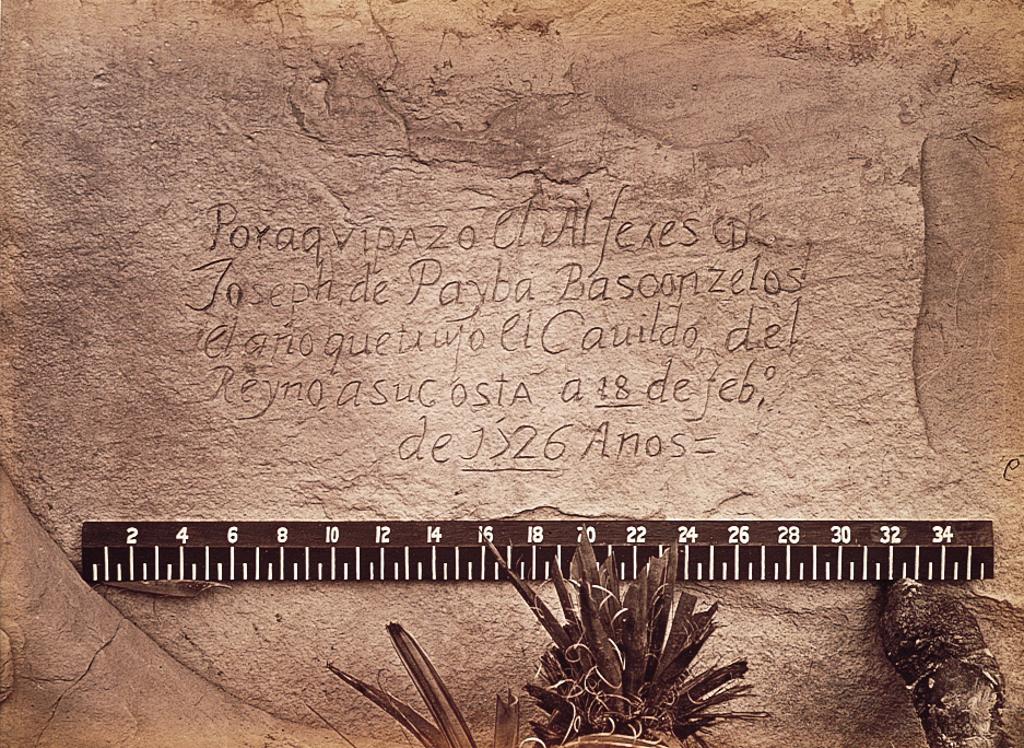 Por aqui pazo el Alferes Dn
Joseph, de Payba Basconzelos
el año que tuuyo el Cauildo, del
Reyno, a su costa, a 18 de feb.º
de 1526 Años=
2 4 6 8 10 12 14 16 18 20 22 24 26 28 30 32 34